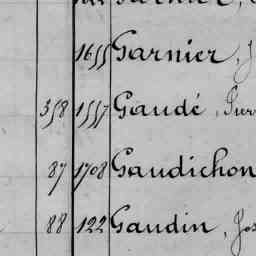 1655 Garnier, J
358 1557 Gaudé,
87 1708 Gaudichon
88 122 Gaudin, Jos